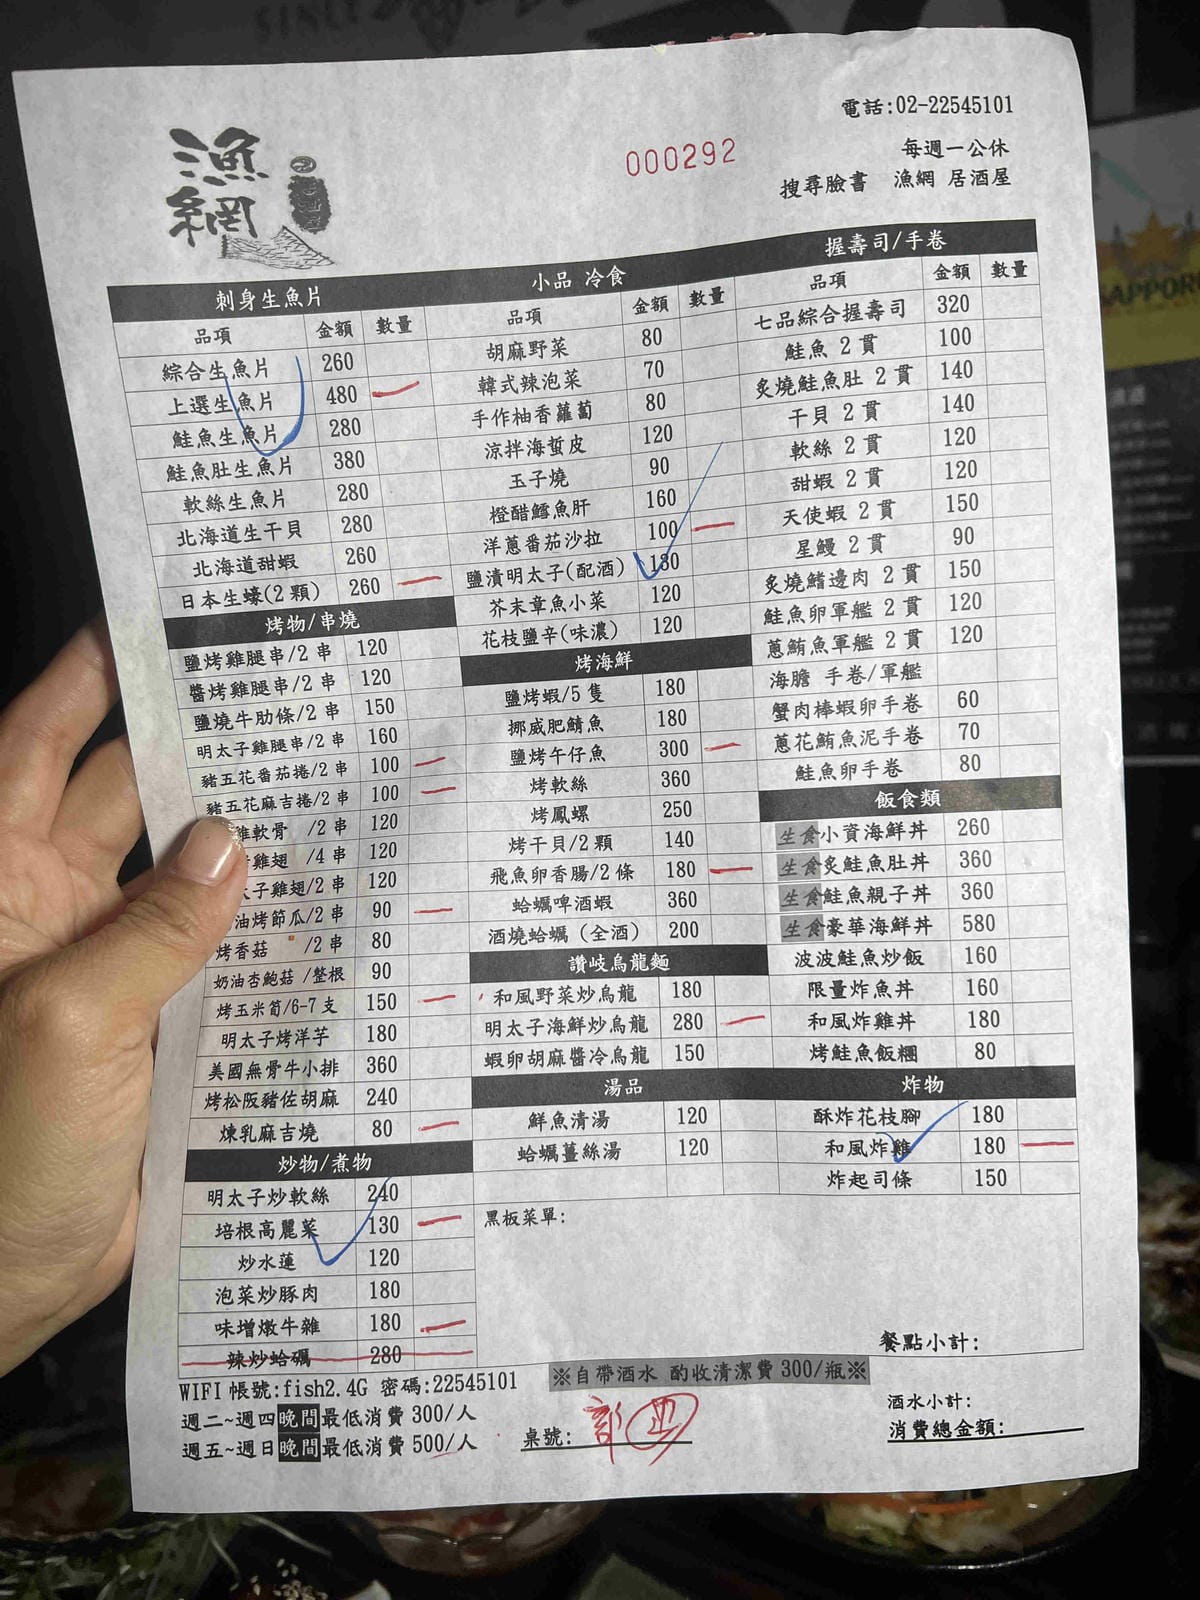 電話:02-22545101
漁網
000292
每週一公休
搜尋臉書 漁網 居酒屋
刺身生魚片
品項 金額 數量
綜合生魚片 260
上選生魚片 480
鮭魚生魚片 280
鮭魚肚生魚片 380
軟絲生魚片 280
北海道生干貝 280
北海道甜蝦 260
日本生蠔(2顆) 260
烤物/串燒
鹽烤雞腿串/2串 120
醬烤雞腿串/2串 120
鹽燒牛肋條/2串 150
明太子雞腿串/2串 160
豬五花番茄捲/2串 100
豬五花麻吉捲/2串 100
雞軟骨 /2串 120
雞翅 /4串 120
太子雞翅/2串 120
油烤節瓜/2串 90
烤香菇 /2串 80
奶油杏鮑菇 /整根 90
烤玉米筍/6-7支 150
明太子烤洋芋 180
美國無骨牛小排 360
烤松阪豬佐胡麻 240
煉乳麻吉燒 80
炒物/煮物
明太子炒軟絲 240
培根高麗菜 130
炒水蓮 120
泡菜炒豚肉 180
味增燉牛雜 180
辣炒蛤蠣 280
小品 冷食
品項 金額 數量
胡麻野菜 80
韓式辣泡菜 70
手作柚香蘿蔔 80
涼拌海蜇皮 120
玉子燒 90
橙醋鱈魚肝 160
洋蔥番茄沙拉 100
鹽漬明太子(配酒) 180
芥末章魚小菜 120
花枝鹽辛(味濃) 120
烤海鮮
鹽烤蝦/5隻 180
挪威肥鯖魚 180
鹽烤午仔魚 300
烤軟絲 360
烤鳳螺 250
烤干貝/2顆 140
飛魚卵香腸/2條 180
蛤蠣啤酒蝦 360
酒燒蛤蠣(全酒) 200
讚岐烏龍麵
和風野菜炒烏龍 180
明太子海鮮炒烏龍 280
蝦卵胡麻醬冷烏龍 150
湯品
鮮魚清湯 120
蛤蠣薑絲湯 120
握壽司/手卷
品項 金額 數量
七品綜合握壽司 320
鮭魚 2貫 100
炙燒鮭魚肚 2貫 140
干貝 2貫 140
軟絲 2貫 120
甜蝦 2貫 120
天使蝦 2貫 150
星鰻 2貫 90
炙燒鰭邊肉 2貫 150
鮭魚卵軍艦 2貫 120
蔥鮪魚軍艦 2貫 120
海膽 手卷/軍艦
蟹肉棒蝦卵手卷 60
蔥花鮪魚泥手卷 70
鮭魚卵手卷 80
飯食類
生食小資海鮮丼 260
生食炙鮭魚肚丼 360
生食鮭魚親子丼 360
生食豪華海鮮丼 580
波波鮭魚炒飯 160
限量炸魚丼 160
和風炸雞丼 180
烤鮭魚飯糰 80
炸物
酥炸花枝腳 180
和風炸雞 180
炸起司條 150
黑板菜單:
餐點小計:
WIFI 帳號:fish2.4G 密碼:22545101
※自帶酒水 酌收清潔費 300/瓶※
週二~週四晚間最低消費 300/人
週五~週日晚間最低消費 500/人
桌號:
酒水小計:
消費總金額: